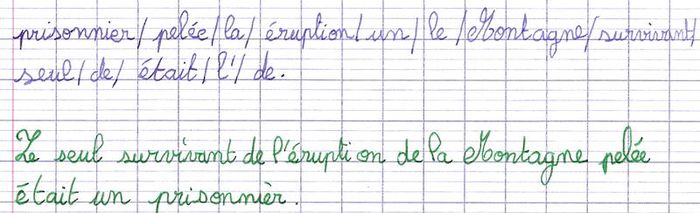 prisonnier/ pelée/la/ éruption/un/ le/Montagne/survivant/
seul/de/ était/l'/ de.
Le seul survivant de l'éruption de la Montagne pelée
était un prisonnier.